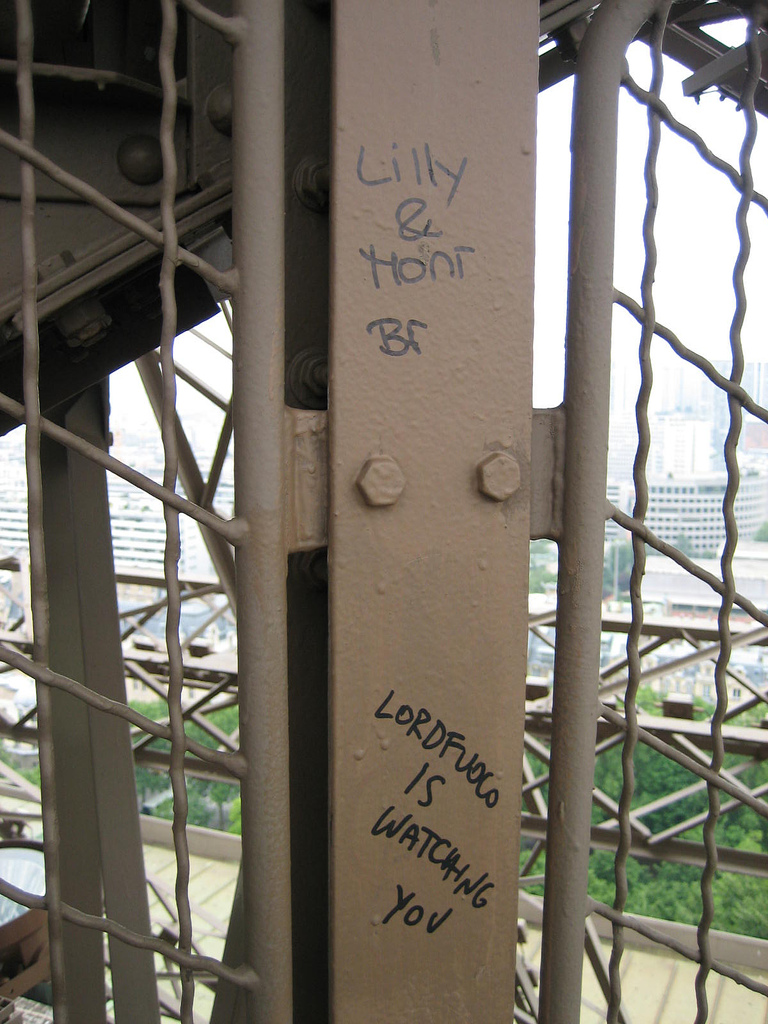 Lilly
&
Mont
BF
LORDFUOCO
IS
WATCHING
YOU